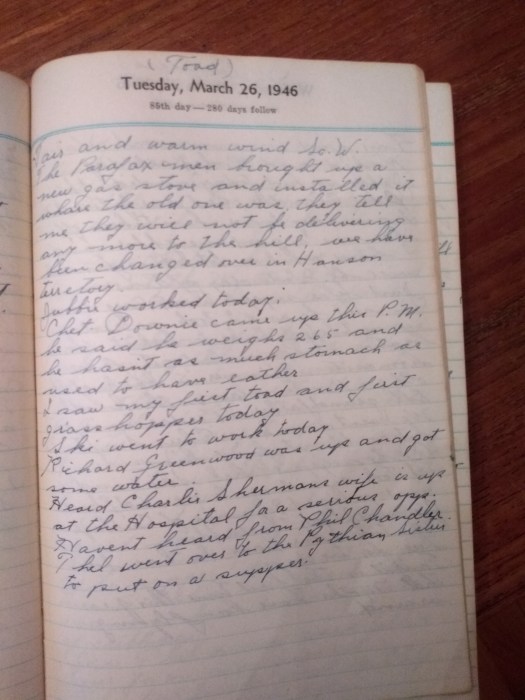 (Toad)
Tuesday, March 26, 1946
85th day—280 days follow
Fair and warm wind So. W.
The Parafax men brought up a
new gas stove and installed it
whare the old one was, they tell
me they will not be delivering
any more to the hill, we have
been changed over in Hanson
terretory.
Dubbie worked today.
Chet Downie came up this P.M.
he said he weighs 265 and
he hasnt as much stomach as
used to have eather
I saw my first toad and first
grasshopper today
Ski went to work today
Richard Greenwood was up and got
some water.
Heard Charlie Shermans wife is up
at the Hospital for a serious opp.
Havent heard from Phil Chandler.
Thel went over to the Pythian Sister
to put on a supper.